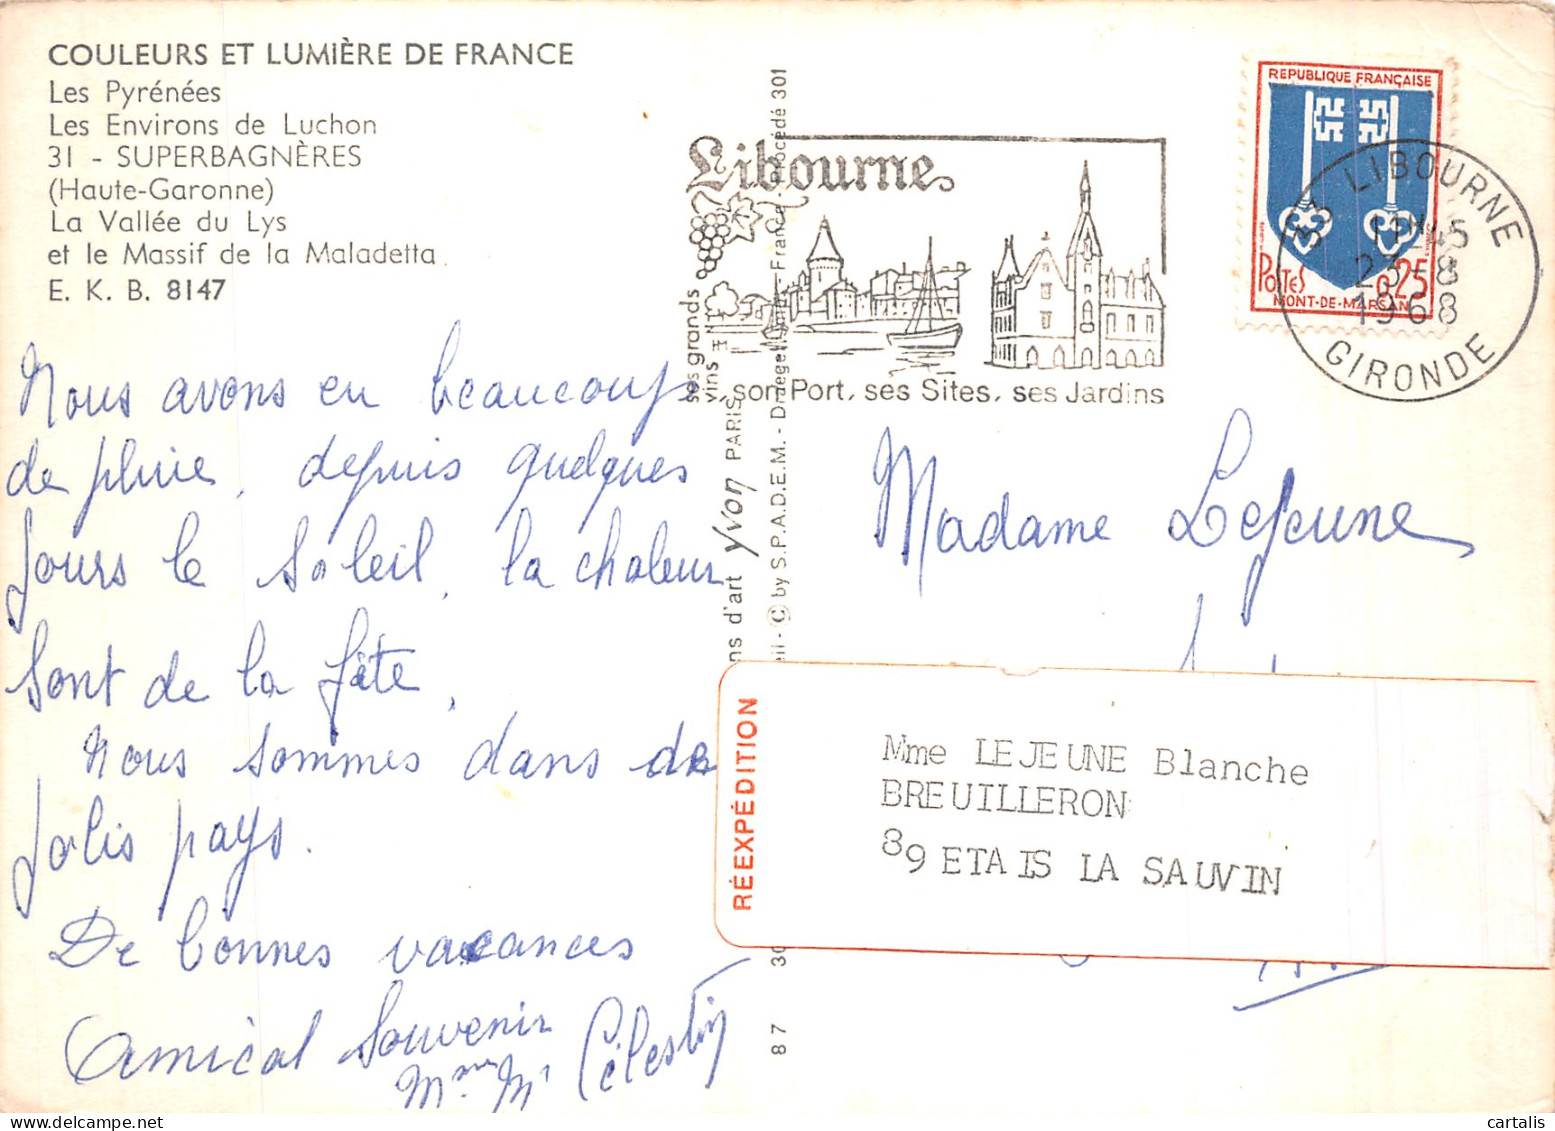 COULEURS ET LUMIÈRE DE FRANCE
Les Pyrénées
Les Environs de Luchon
31 - SUPERBAGNÈRES
(Haute-Garonne)
La Vallée du Lys
et le Massif de la Maladetta
E. K. B. 8147
Nous avons eu beaucoup
de pluie, depuis quelques
jours le soleil, la chaleur
sont de la fête,
Nous sommes dans de
jolis pays.
De bonnes vacances
Amical Souvenir
Mme Mr Célestin
ns d'art yvon PARIS
eil - © by S.P.A.D.E.M. - Draeger Imp. France - Procédé 301
87 30
Libourne
ses grands
vins, son Port, ses Sites, ses Jardins
REPUBLIQUE FRANÇAISE
POSTES 0,25
MONT-DE-MARSAN
33 LIBOURNE
17H45
23-8
1968
GIRONDE
Madame Lejeune
RÉEXPÉDITION
Mme LEJEUNE Blanche
BREUILLERON
89 ETAIS LA SAUVIN
cartalis